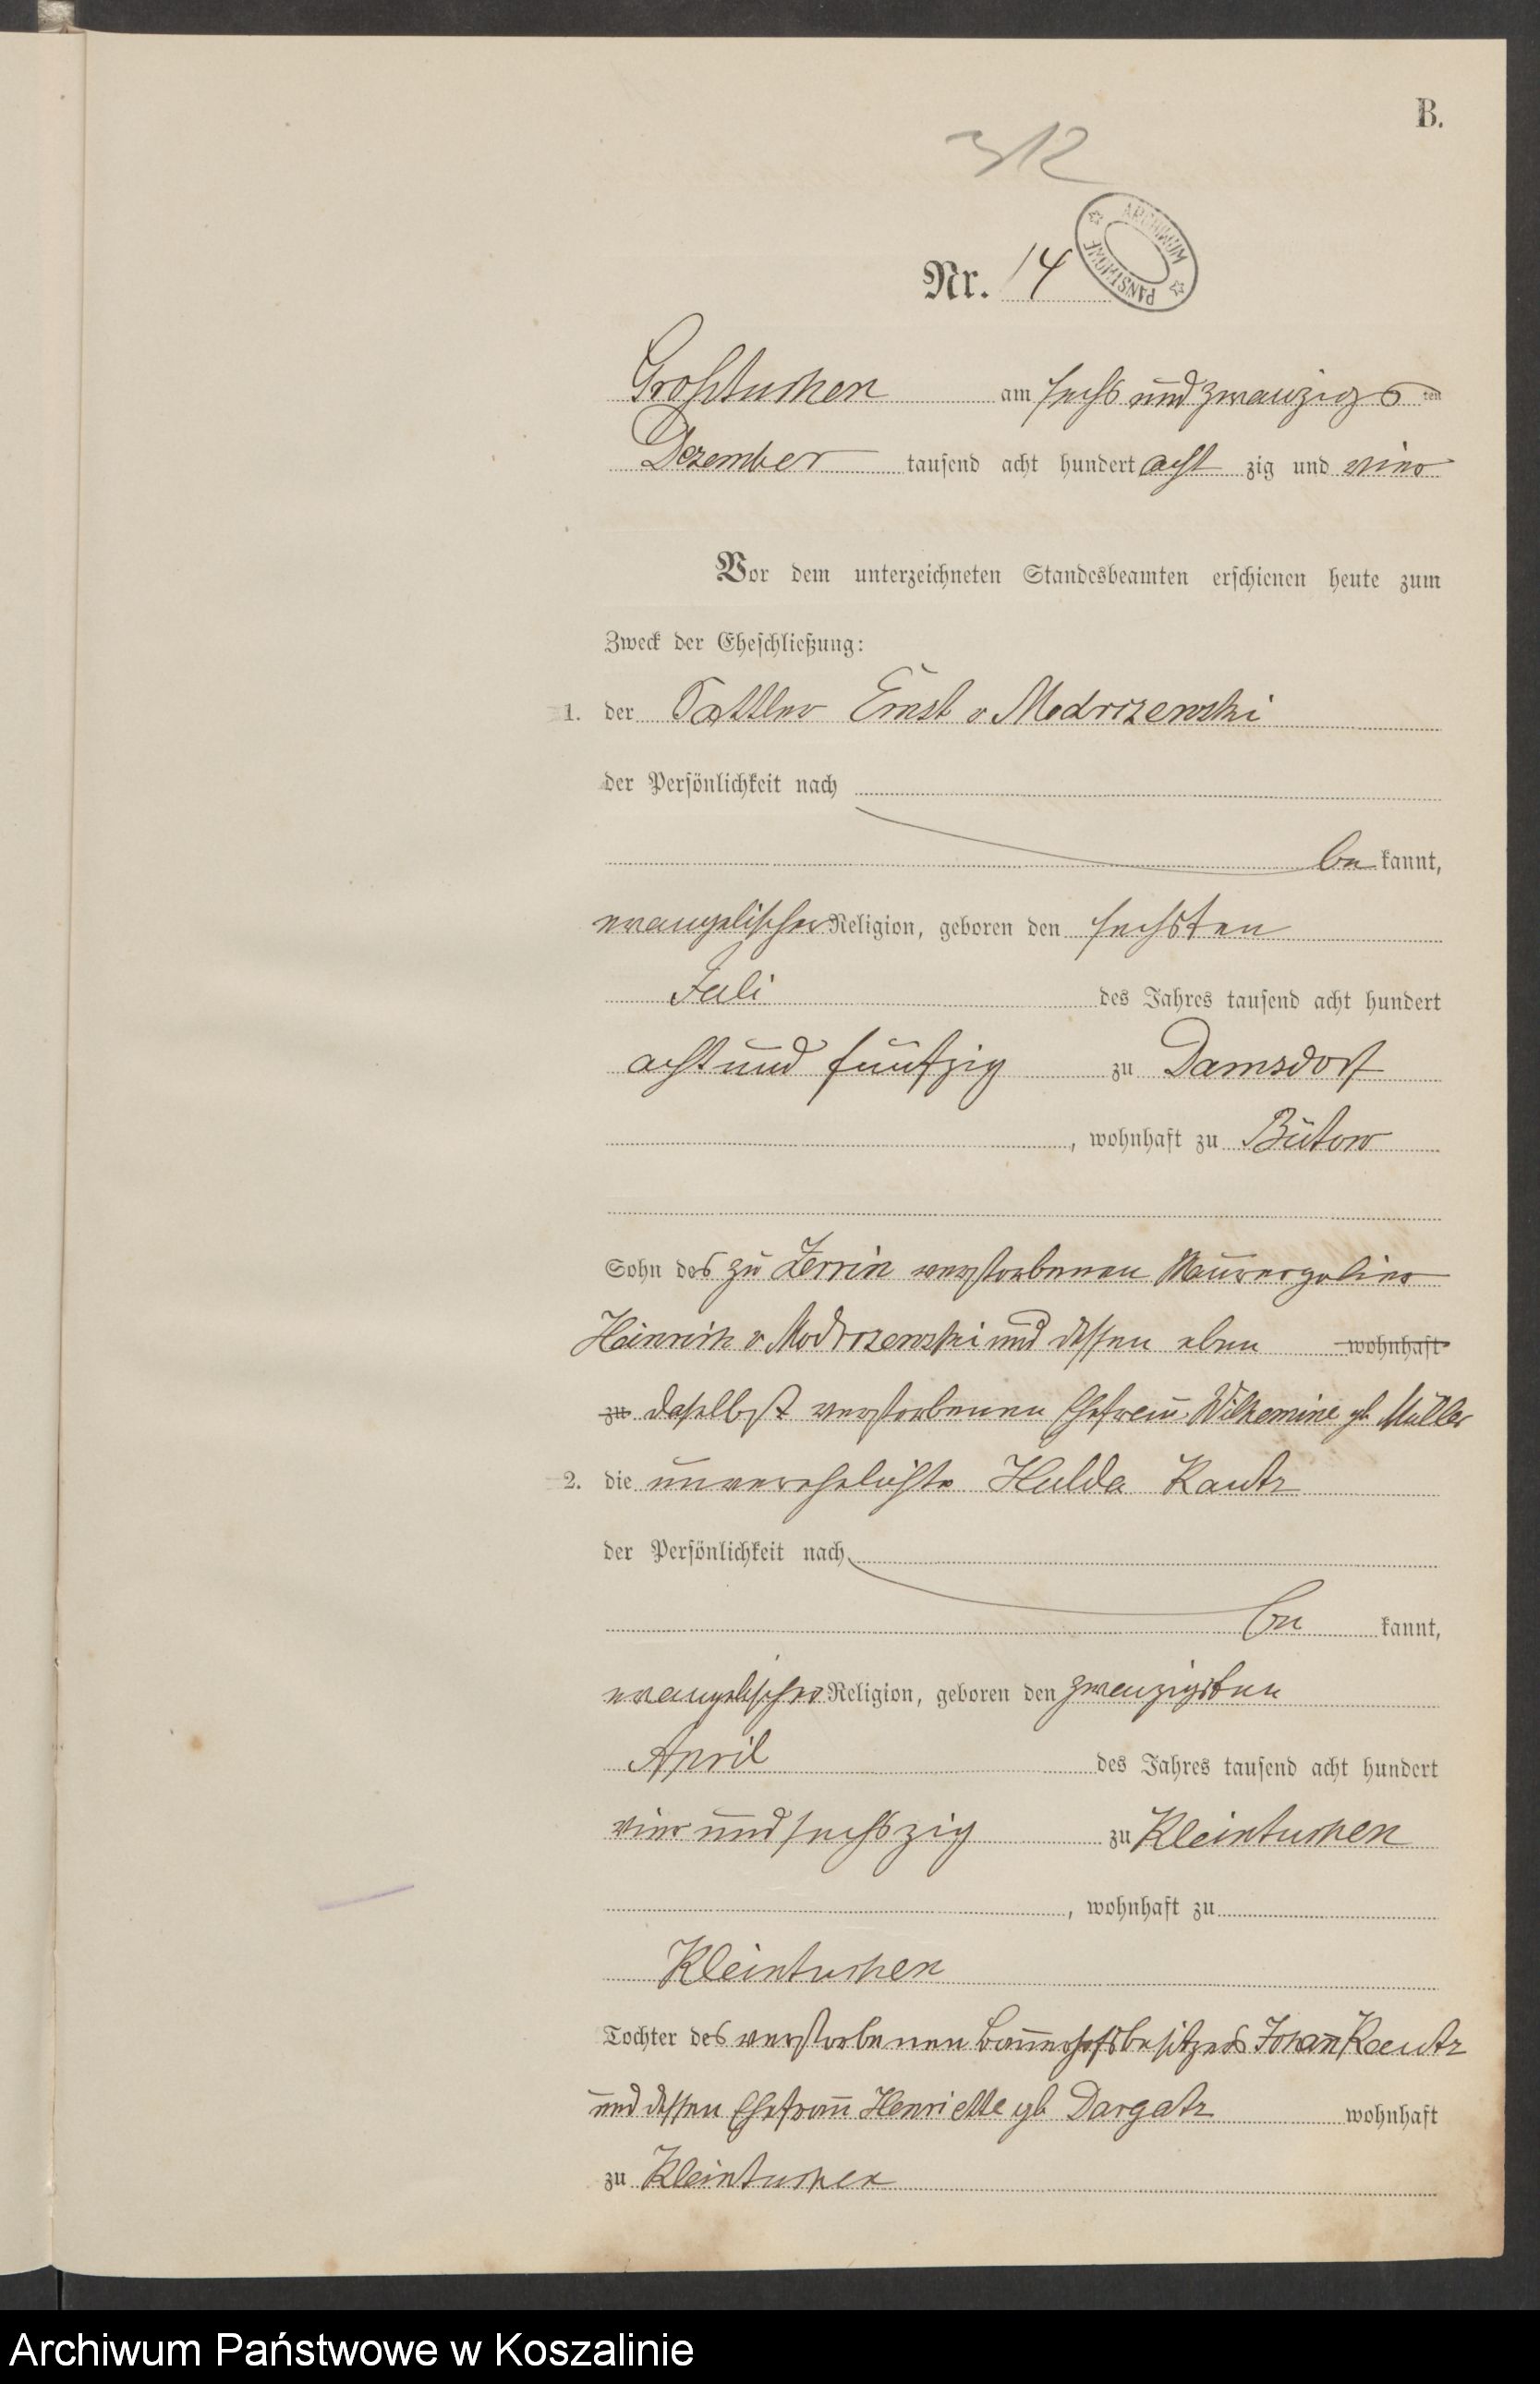 B.
312
Nr. 14
ARCHIWUM PAŃSTWOWE
Großtuchen am sechs und zwanzigsten
Dezember tausend acht hundert acht zig und vier
Vor dem unterzeichneten Standesbeamten erschienen heute zum
Zweck der Eheschließung:
1. der Sattler Ernst v. Modrzewski
der Persönlichkeit nach
be kannt,
evangelischer Religion, geboren den sechsten
Juli des Jahres tausend acht hundert
acht und fünfzig zu Damsdorf
, wohnhaft zu Bütow
Sohn des zu Zerrin verstorbenen Maurerpolier
Heinrich v. Modrzewski und dessen eben wohnhaft
zu daselbst verstorbenen Ehefrau Wilhemine gb Müller
2. die unverehelichte Hulda Kautz
der Persönlichkeit nach
be kannt,
evangelischer Religion, geboren den zwanzigsten
April des Jahres tausend acht hundert
vier und sechszig zu Kleintuchen
, wohnhaft zu
Kleintuchen
Tochter des verstorbenen Bauerhofsbesitzers Johann Kautz
und dessen Ehefrau Henriette gb Dargatz wohnhaft
zu Kleintuchen
Archiwum Państwowe w Koszalinie